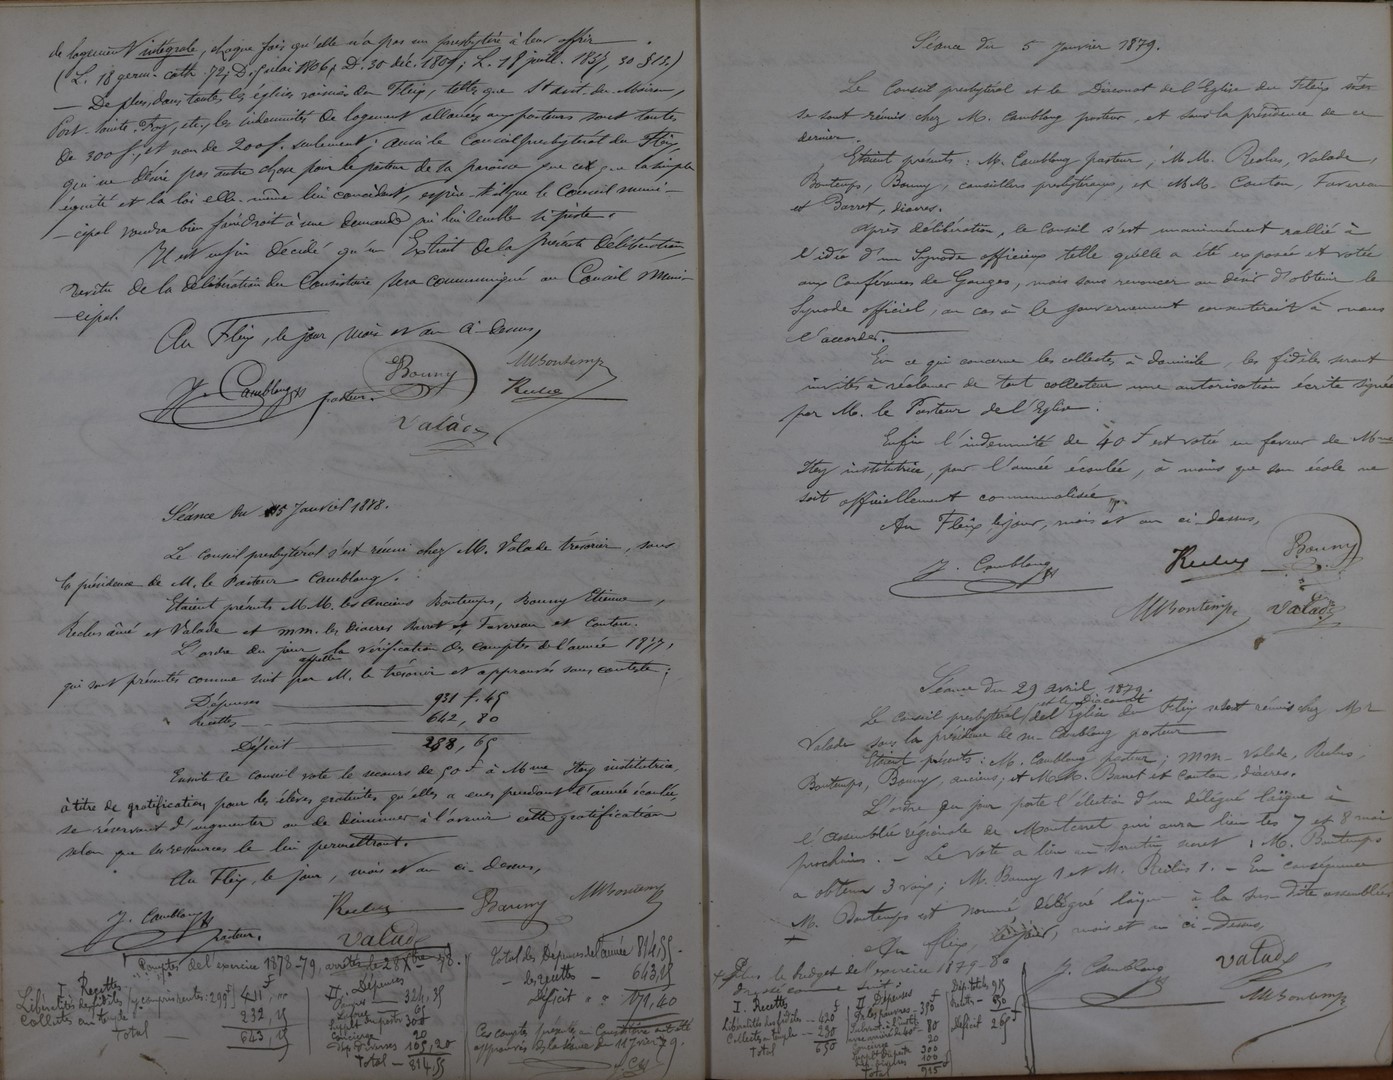 de logement intégrale, chaque fois qu'elle n'a pas un presbytère à leur offrir.
(L. 18 germ. cath. 72; D. 30 dec. 1809; L. 18 juill. 1837, 30 §13.)
— De plus, dans toutes les églises voisines du Fleix, telles que St Avit-du-Moiron,
Port-Sainte-Foy, etc, les indemnités de logement allouées aux pasteurs sont toutes
de 300 f, et non de 200 f. seulement; aussi le Conseil presbytéral du Fleix,
qui ne désire pas autre chose pour le pasteur de la paroisse que ce que la simple
équité et la loi elle-même lui concèdent, espère-t-il que le Conseil muni-
-cipal voudra bien faire droit à une demande qui lui semble si juste.
Il est enfin décidé qu'un Extrait de la présente délibération,
revêtu de la délibération du Consistoire sera communiqué au Conseil Muni-
-cipal.
Au Fleix, le jour, mois et an ci-dessus,
J. Camblong pasteur.
Bouny
MBontemps
Reclus
Valade
Séance du 15 Janvier 1878.
Le conseil presbytéral s'est réuni chez M. Valade trésorier, sous
la présidence de M. le Pasteur Camblong.
Etaient présents MM. les Anciens Bontemps, Bouny Etienne,
Reclus aîné et Valade et mm. les Diacres Barret et Favereau et Coutou.
L'ordre du jour appelle la vérification des comptes de l'année 1877,
qui sont présentés comme suit par M. le trésorier et approuvés sans conteste:
Dépenses 931 f. 45
Recettes 642, 80
Déficit 288, 65
Ensuite le conseil vote le secours de 50 f à Mme Hey institutrice,
à titre de gratification, pour les élèves gratuites qu'elle a eues pendant l'année écoulée,
se réservant d'augmenter ou de diminuer à l'avenir cette gratification
selon que ses ressources le lui permettront.
Au Fleix, le jour, mois et an ci-dessus,
J. Camblong pasteur.
Reclus
Bouny
MBontemps
Valade
Comptes de l'exercice 1878-79, arrêtés le 28 Xbre 78.
I. Recettes
Libéralités des fidèles (y compris rentes: 290 f) 411 f,..
Collectes au temple 232, 15
Total 643, 15
II. Dépenses
Pauvres 324, 35
Livres
Supplt au pasteur 300
Concierge 20
Dép. diverses 105, 20
Total — 814, 55
Total des Dépenses de l'année 814,55
— les recettes — 643,15
Déficit " " 171,40
Ces comptes présentés au Consistoire ont été
approuvés dans la séance du 11 févr 79.
Séance du 5 Janvier 1879.
Le Conseil presbytéral et le Diaconat de l'Eglise du Fleix
se sont réunis chez M. Camblong pasteur, et sous la présidence de ce
dernier.
Etaient présents: M. Camblong pasteur; MM. Reclus, Valade,
Bontemps, Bouny, conseillers presbytéraux, et MM. Coutou, Favereau
et Barret, diacres.
Après délibération, le Conseil s'est unanimement rallié à
l'idée d'un Synode officieux telle qu'elle a été exposée et votée
aux Conférences de Ganges, mais sans renoncer au désir d'obtenir le
Synode officiel, au cas où le gouvernement consentirait à nous
l'accorder.
En ce qui concerne les collectes à domicile, les fidèles seront
invités à réclamer de tout collecteur une autorisation écrite signée
par M. le Pasteur de l'Eglise.
Enfin l'indemnité de 40 f est votée en faveur de Mme
Hey institutrice, pour l'année écoulée, à moins que son école ne
soit officiellement communalisée.
Au Fleix le jour, mois et an ci-dessus,
J. Camblong
Reclus
Bouny
MBontemps
Valade
Séance du 29 avril 1879.
Le Conseil presbytéral et le Diaconat de l'Eglise du Fleix se sont réunis chez Mr
Valade sous la présidence de m. Camblong pasteur
Etaient présents: M. Camblong pasteur; mm. Valade, Reclus,
Bontemps, Bouny, anciens; et MM. Barret et Coutou, diacres.
L'ordre du jour porte l'élection d'un délégué laïque à
l'assemblée régionale de Montcaret qui aura lieu les 7 et 8 mai
prochains. — Le vote a lieu au scrutin secret: M. Bontemps
a obtenu 3 voix; M. Bouny 1 et M. Reclus 1. — En conséquence
M. Bontemps est nommé délégué laïque à la sus-dite assemblée.
Au Fleix, le jour, mois et an ci-dessus,
J. Camblong
Valade
MBontemps
+ Plus le budget de l'exercice 1879-80
I. Recettes
Libéralités des fidèles -- 420 f
Collectes au temple -- 230
Total 650
II. Dépenses
Pr les pauvres -- 390 f
80
Concierge 20
Supplt au past. 300
Dép. diverses 100
Total 915
Dép. totales 915
Recettes — 650
Déficit 265 f